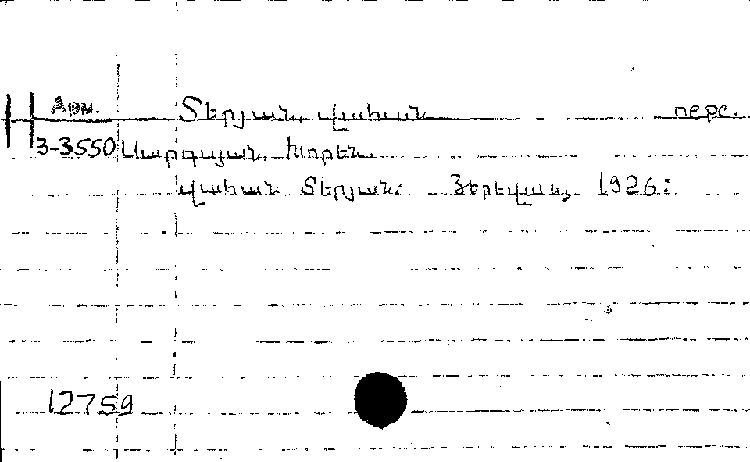 Арм. Տերյան, Վահան. перс.
3-3550 Սարգսյան, Խորեն.
Վահան Տերյան: Յերեվան, 1926:
12759